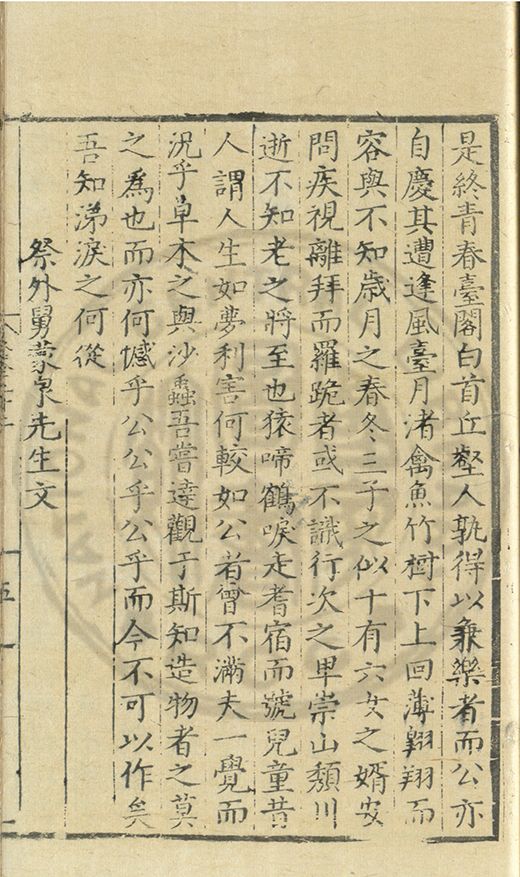 是終青春臺閣白首丘壑人孰得以兼樂者而公亦
自慶其遭逢風臺月渚禽魚竹樹下上回薄翱翔而
容與不知歲月之春冬三子之似十有六女之婿安
問疾視離拜而羅跪者或不識行次之卑崇山頹川
逝不知老之將至也猿啼鶴唳走耆宿而號兒童昔
人謂人生如夢利害何較如公者曾不滿夫一覺而
況乎草木之與沙蟲吾嘗達觀于斯知造物者之莫
之爲也而亦何憾乎公公乎公乎而今不可以作矣
吾知涕淚之何從
祭外舅蒙泉先生文
五